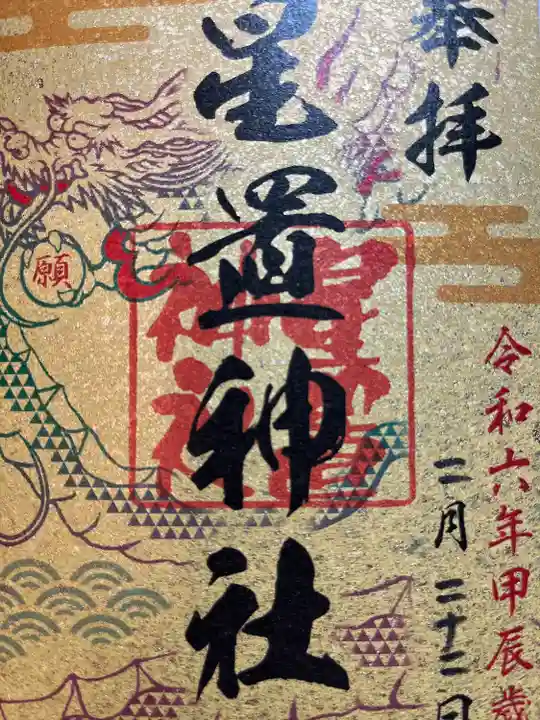 奉拝
令和六年甲辰歳
二月二十二日
星置神社
星置神社
願